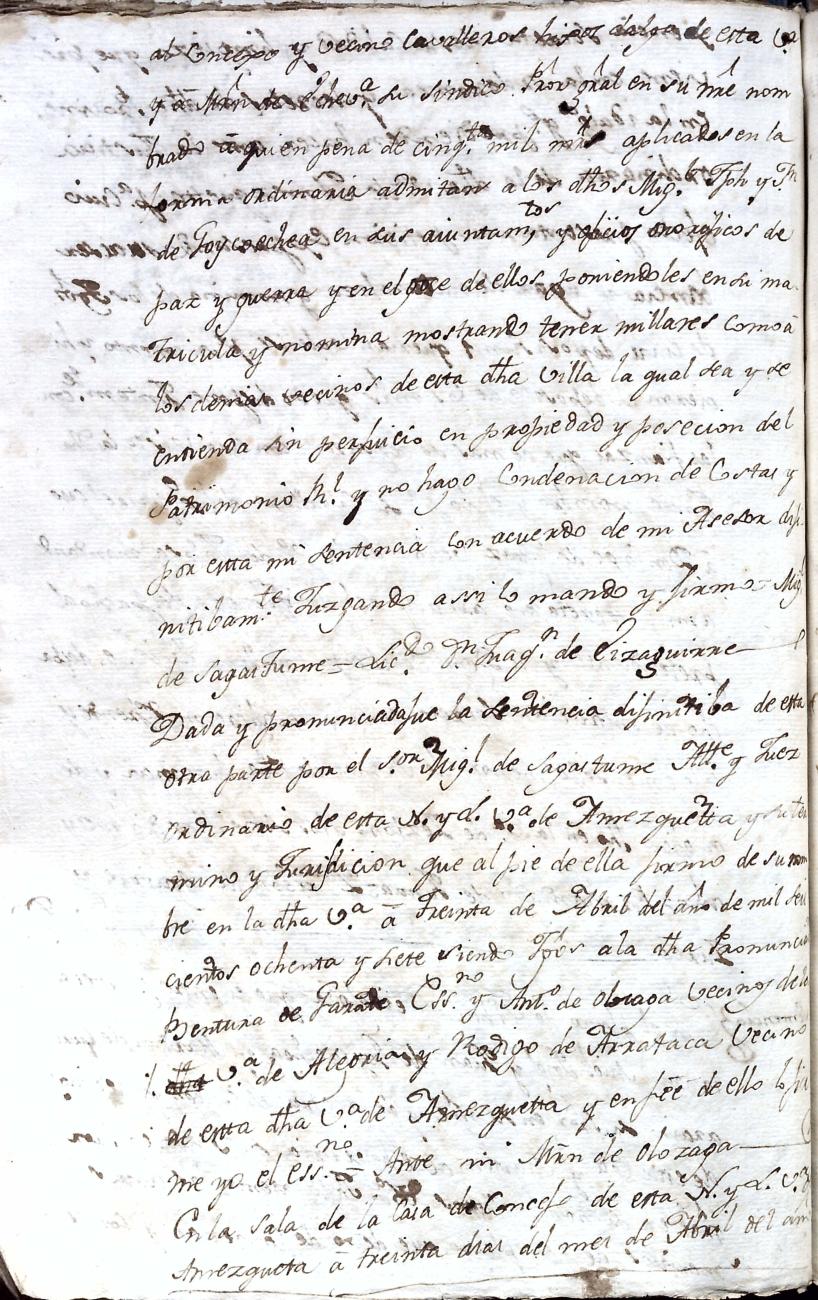 al Concejo y vecino Cavalleros hijos dalgo de esta Va
y a Mrn de Echeva su sindico Pror gral en su nre nom
brado a quien pena de cinqta mil mrs aplicados en la
forma ordinaria admitan a los dhos Migl Jph y Jn
de Goycoechea en sus aiuntamtos y oficios onorificos de
paz y guerra y en el goze de ellos poniendoles en su ma
tricula y nomina mostrando tener millares como a
los demas vecinos de esta dha villa la qual sea y se
entienda sin perjuicio en propiedad y posecion del
Patrimonio Rl y no hago Condenacion de Costas y
por esta mi sentencia con acuerdo de mi Asesor difi
nitibamte Juzgando assi lo mando y firmo = Migl
de Sagastume = Licdo Dn Juaqn de Eizaguirre
Dada y pronunciada fue la sentencia difinitiba de esta
otra parte por el sor Migl de Sagastume Alte y Juez
ordinario de esta N. y L. Va de Amezquetta y su ter
mino y Jurisdicion que al pie de ella firmo de su nom
bre en la dha Va a Treinta de Abril del año de mil Seis
cientos ochenta y siete siendo Tgos a la dha Pronuncia
Bentura de Garate Essno y Anto de Obiaga Vecinos de la
dha Va de Alegria y Rodrigo de Arrataca Vecino
de estta dha Va de Amezquetta y en fee de ello lo fir
me yo el essno = Ante mi Mrn de Olozaga
En la Sala de la Casa de Concejo de esta N. y L. Va
Amezqueta a treinta dias del mes de Abril del año